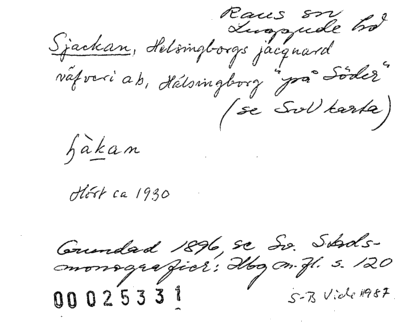 Raus sn
Luggude hd
Sjackan, Helsingborgs jacquard
väfveri ab, Hälsingborg "på Söder"
(se SvU karta)
hàkan
Hört ca 1930
Grundad 1896, se Sv. Stads-
monografier: Hbg m.fl. s. 120
00025331
S-B Vide 1987